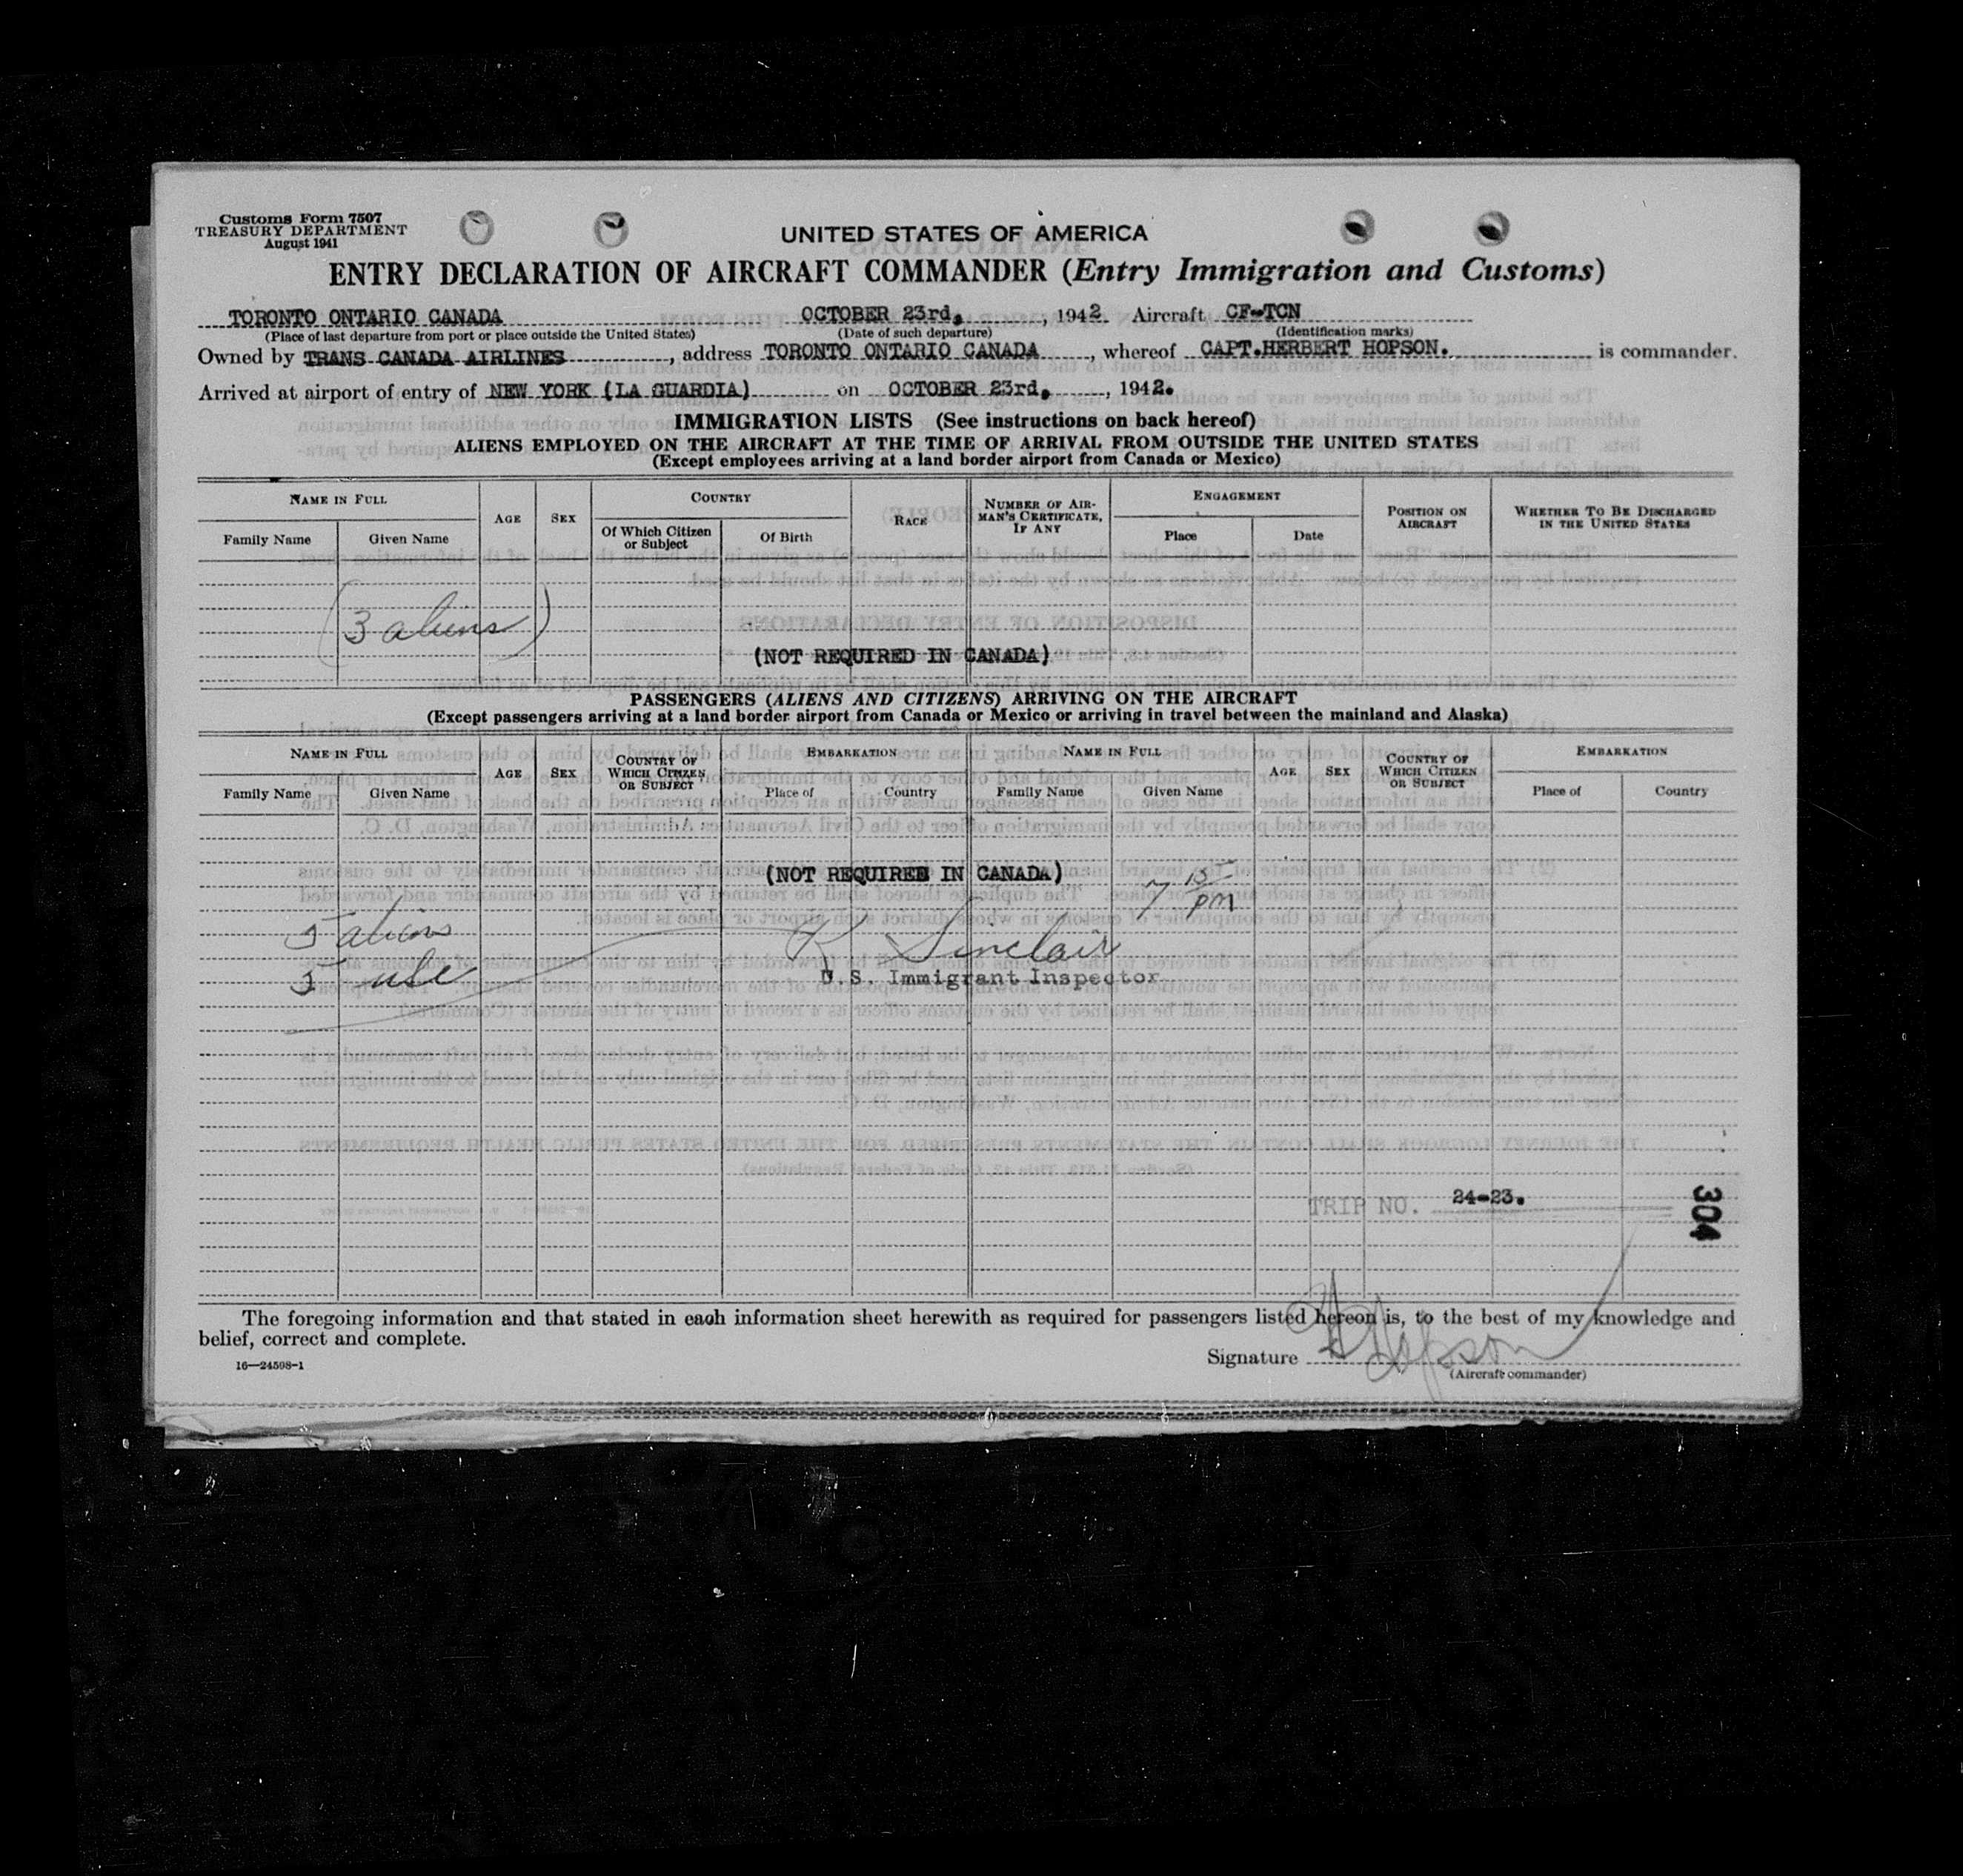 Customs Form 7507
TREASURY DEPARTMENT
August 1941
UNITED STATES OF AMERICA
ENTRY DECLARATION OF AIRCRAFT COMMANDER (Entry Immigration and Customs)
TORONTO ONTARIO CANADA OCTOBER 23rd, , 1942. Aircraft CF-TCN
(Place of last departure from port or place outside the United States) (Date of such departure) (Identification marks)
Owned by TRANS CANADA AIRLINES , address TORONTO ONTARIO CANADA , whereof CAPT.HERBERT HOPSON. is commander.
Arrived at airport of entry of NEW YORK (LA GUARDIA) on OCTOBER 23rd, , 1942.
IMMIGRATION LISTS (See instructions on back hereof)
ALIENS EMPLOYED ON THE AIRCRAFT AT THE TIME OF ARRIVAL FROM OUTSIDE THE UNITED STATES
(Except employees arriving at a land border airport from Canada or Mexico)
NAME IN FULL AGE SEX COUNTRY RACE NUMBER OF AIRMAN'S CERTIFICATE, IF ANY ENGAGEMENT POSITION ON AIRCRAFT WHETHER TO BE DISCHARGED IN THE UNITED STATES
Family Name Given Name Of Which Citizen or Subject Of Birth Place Date
(3 aliens)
(NOT REQUIRED IN CANADA)
PASSENGERS (ALIENS AND CITIZENS) ARRIVING ON THE AIRCRAFT
(Except passengers arriving at a land border airport from Canada or Mexico or arriving in travel between the mainland and Alaska)
NAME IN FULL AGE SEX COUNTRY OF WHICH CITIZEN OR SUBJECT EMBARKATION NAME IN FULL AGE SEX COUNTRY OF WHICH CITIZEN OR SUBJECT EMBARKATION
Family Name Given Name Place of Country Family Name Given Name Place of Country
(NOT REQUIRED IN CANADA)
7 15 pm
5 aliens
K Sinclair
5 usc
U.S. Immigrant Inspector
TRIP NO. 24-23.
304
The foregoing information and that stated in each information sheet herewith as required for passengers listed hereon is, to the best of my knowledge and
belief, correct and complete.
Signature H Hopson
16—24598-1
(Aircraft commander)